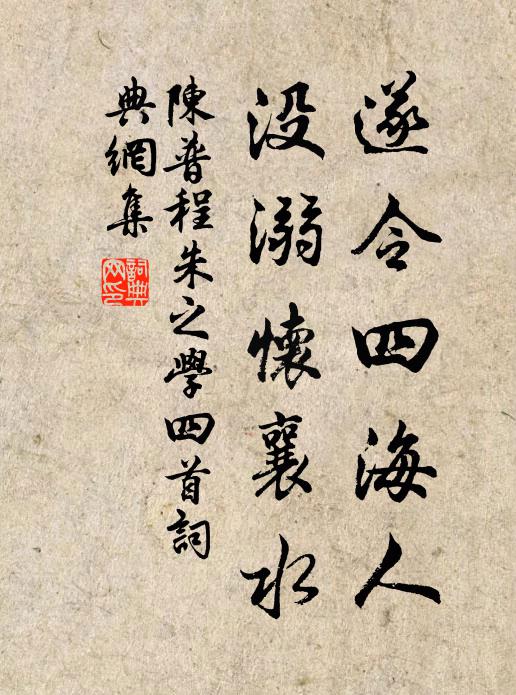 遂令四海人
没溺懷襄水
陳普程朱之學四首詞
典網集
詞典
网印